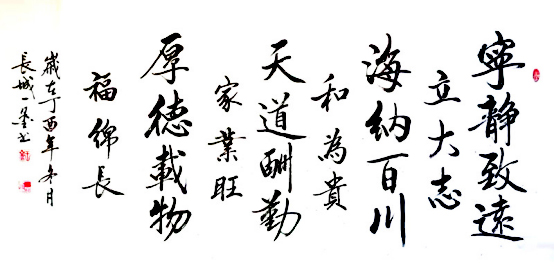 寧靜致遠
立大志
海納百川
和為貴
天道酬勤
家業旺
厚德載物
福綿長
歲在丁酉年冬月
長城一筆書